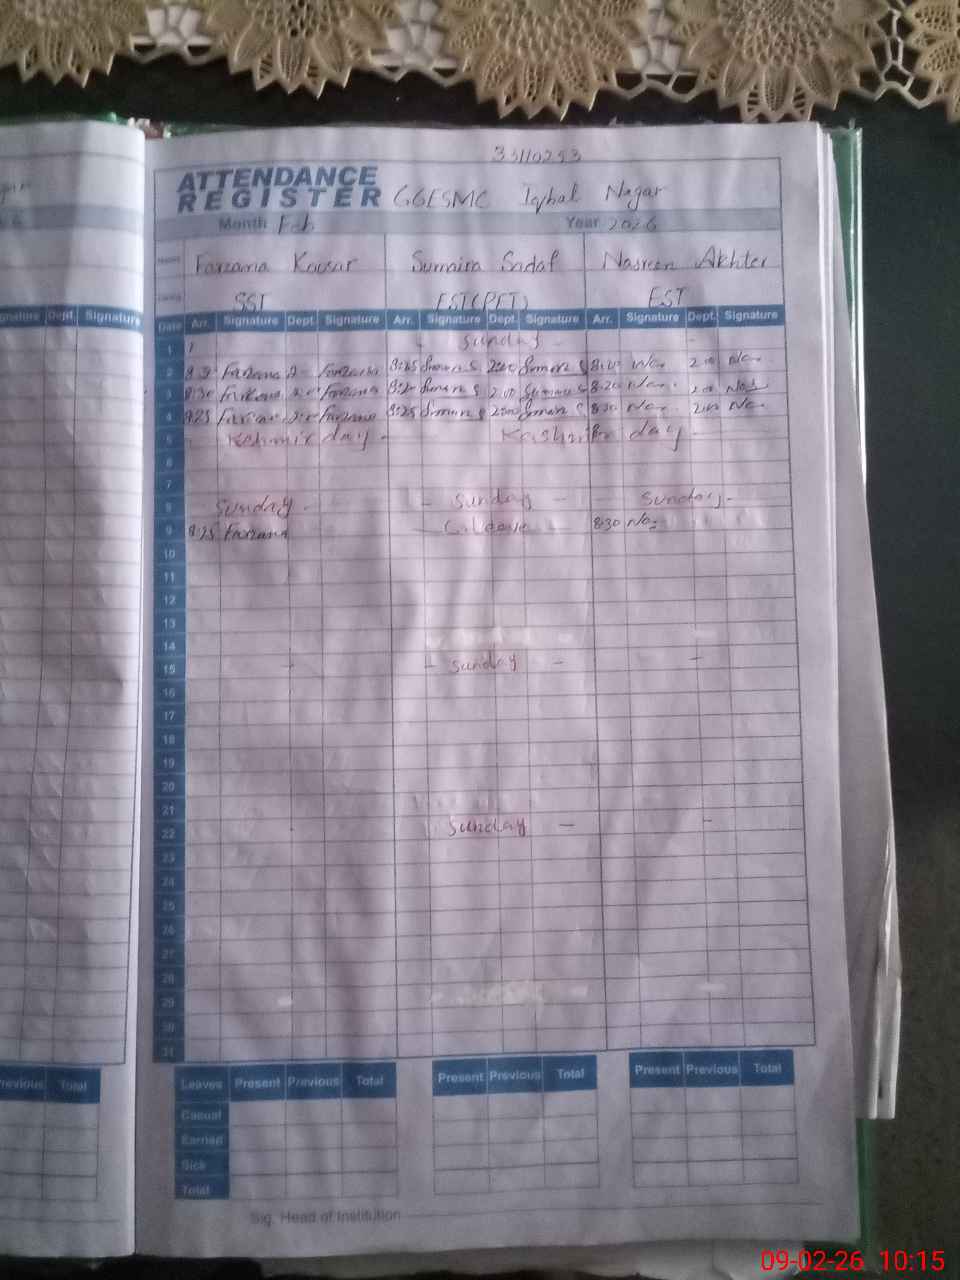 33110253
ATTENDANCE REGISTER GGESMC Iqbal Nagar
Month Feb Year 2026
Farzana Kousar Sumaira Sadaf Nasreen Akhter
SST EST(PET) EST
Signature Dept. Signature
Date Arr. Signature Dept. Signature Arr. Signature Dept. Signature Arr. Signature Dept. Signature
1 Sunday
2 Farzana Farzana 8:25 2:00 8:20 2:00
3 8:30 Farzana 8:20 2:00 8:20 2:00
4 8:25 Farzana Farzana 8:25 2:00 8:30 2:00
5 Kashmir day - Kashmir day
6
7
8 Sunday - - Sunday - - Sunday -
9 8:25 Farzana - C. leave 8:30
10
11
12
13
14
15 - - Sunday - -
16
17
18
19
20
21
22 Sunday - -
23
24
25
26
27
28
29
30
31
Previous Total
Leaves Present Previous Total Present Previous Total Present Previous Total
Casual
Earned
Sick
Total
Sig. Head of Institution
09-02-26 10:15